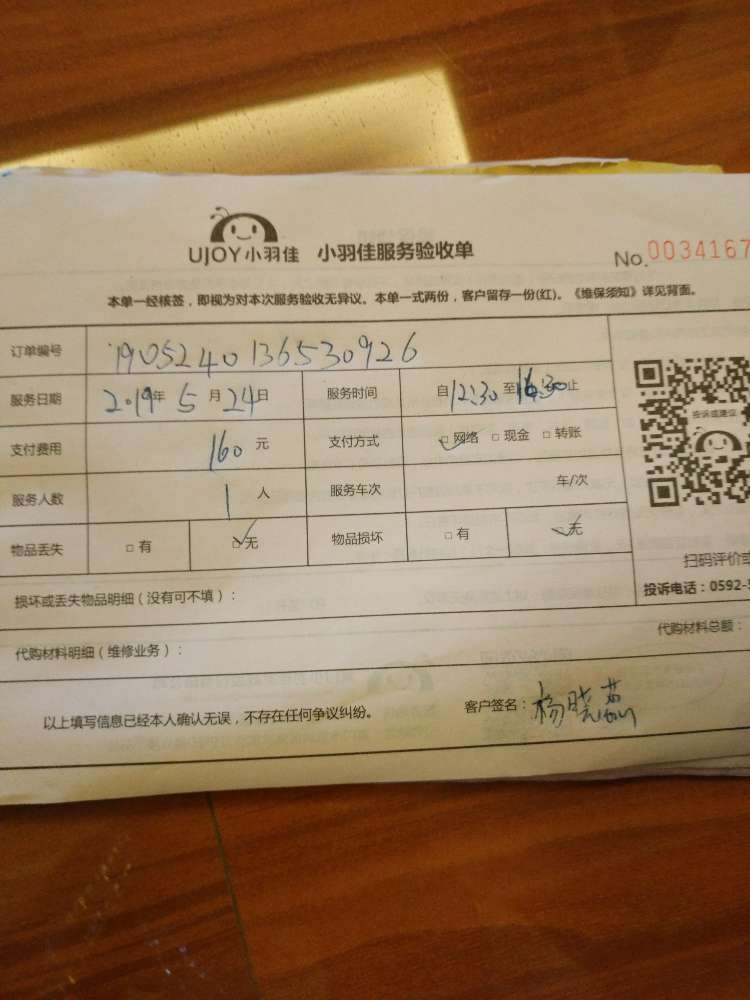 UJOY小羽佳 小羽佳服务验收单
No.0034167
本单一经核签，即视为对本次服务验收无异议。本单一式两份，客户留存一份(红)。《维保须知》详见背面。
订单编号 1905240136530926
服务日期 2019年5月24日 服务时间 自12:30至16:30止
支付费用 160元 支付方式 □网络 □现金 □转账
服务人数 1人 服务车次 车/次
物品丢失 □有 □无 物品损坏 □有 □无
投诉或建议
扫码评价或
投诉电话：0592-5
损坏或丢失物品明细（没有可不填）：
代购材料明细（维修业务）： 代购材料总额：
以上填写信息已经本人确认无误，不存在任何争议纠纷。 客户签名：杨晓